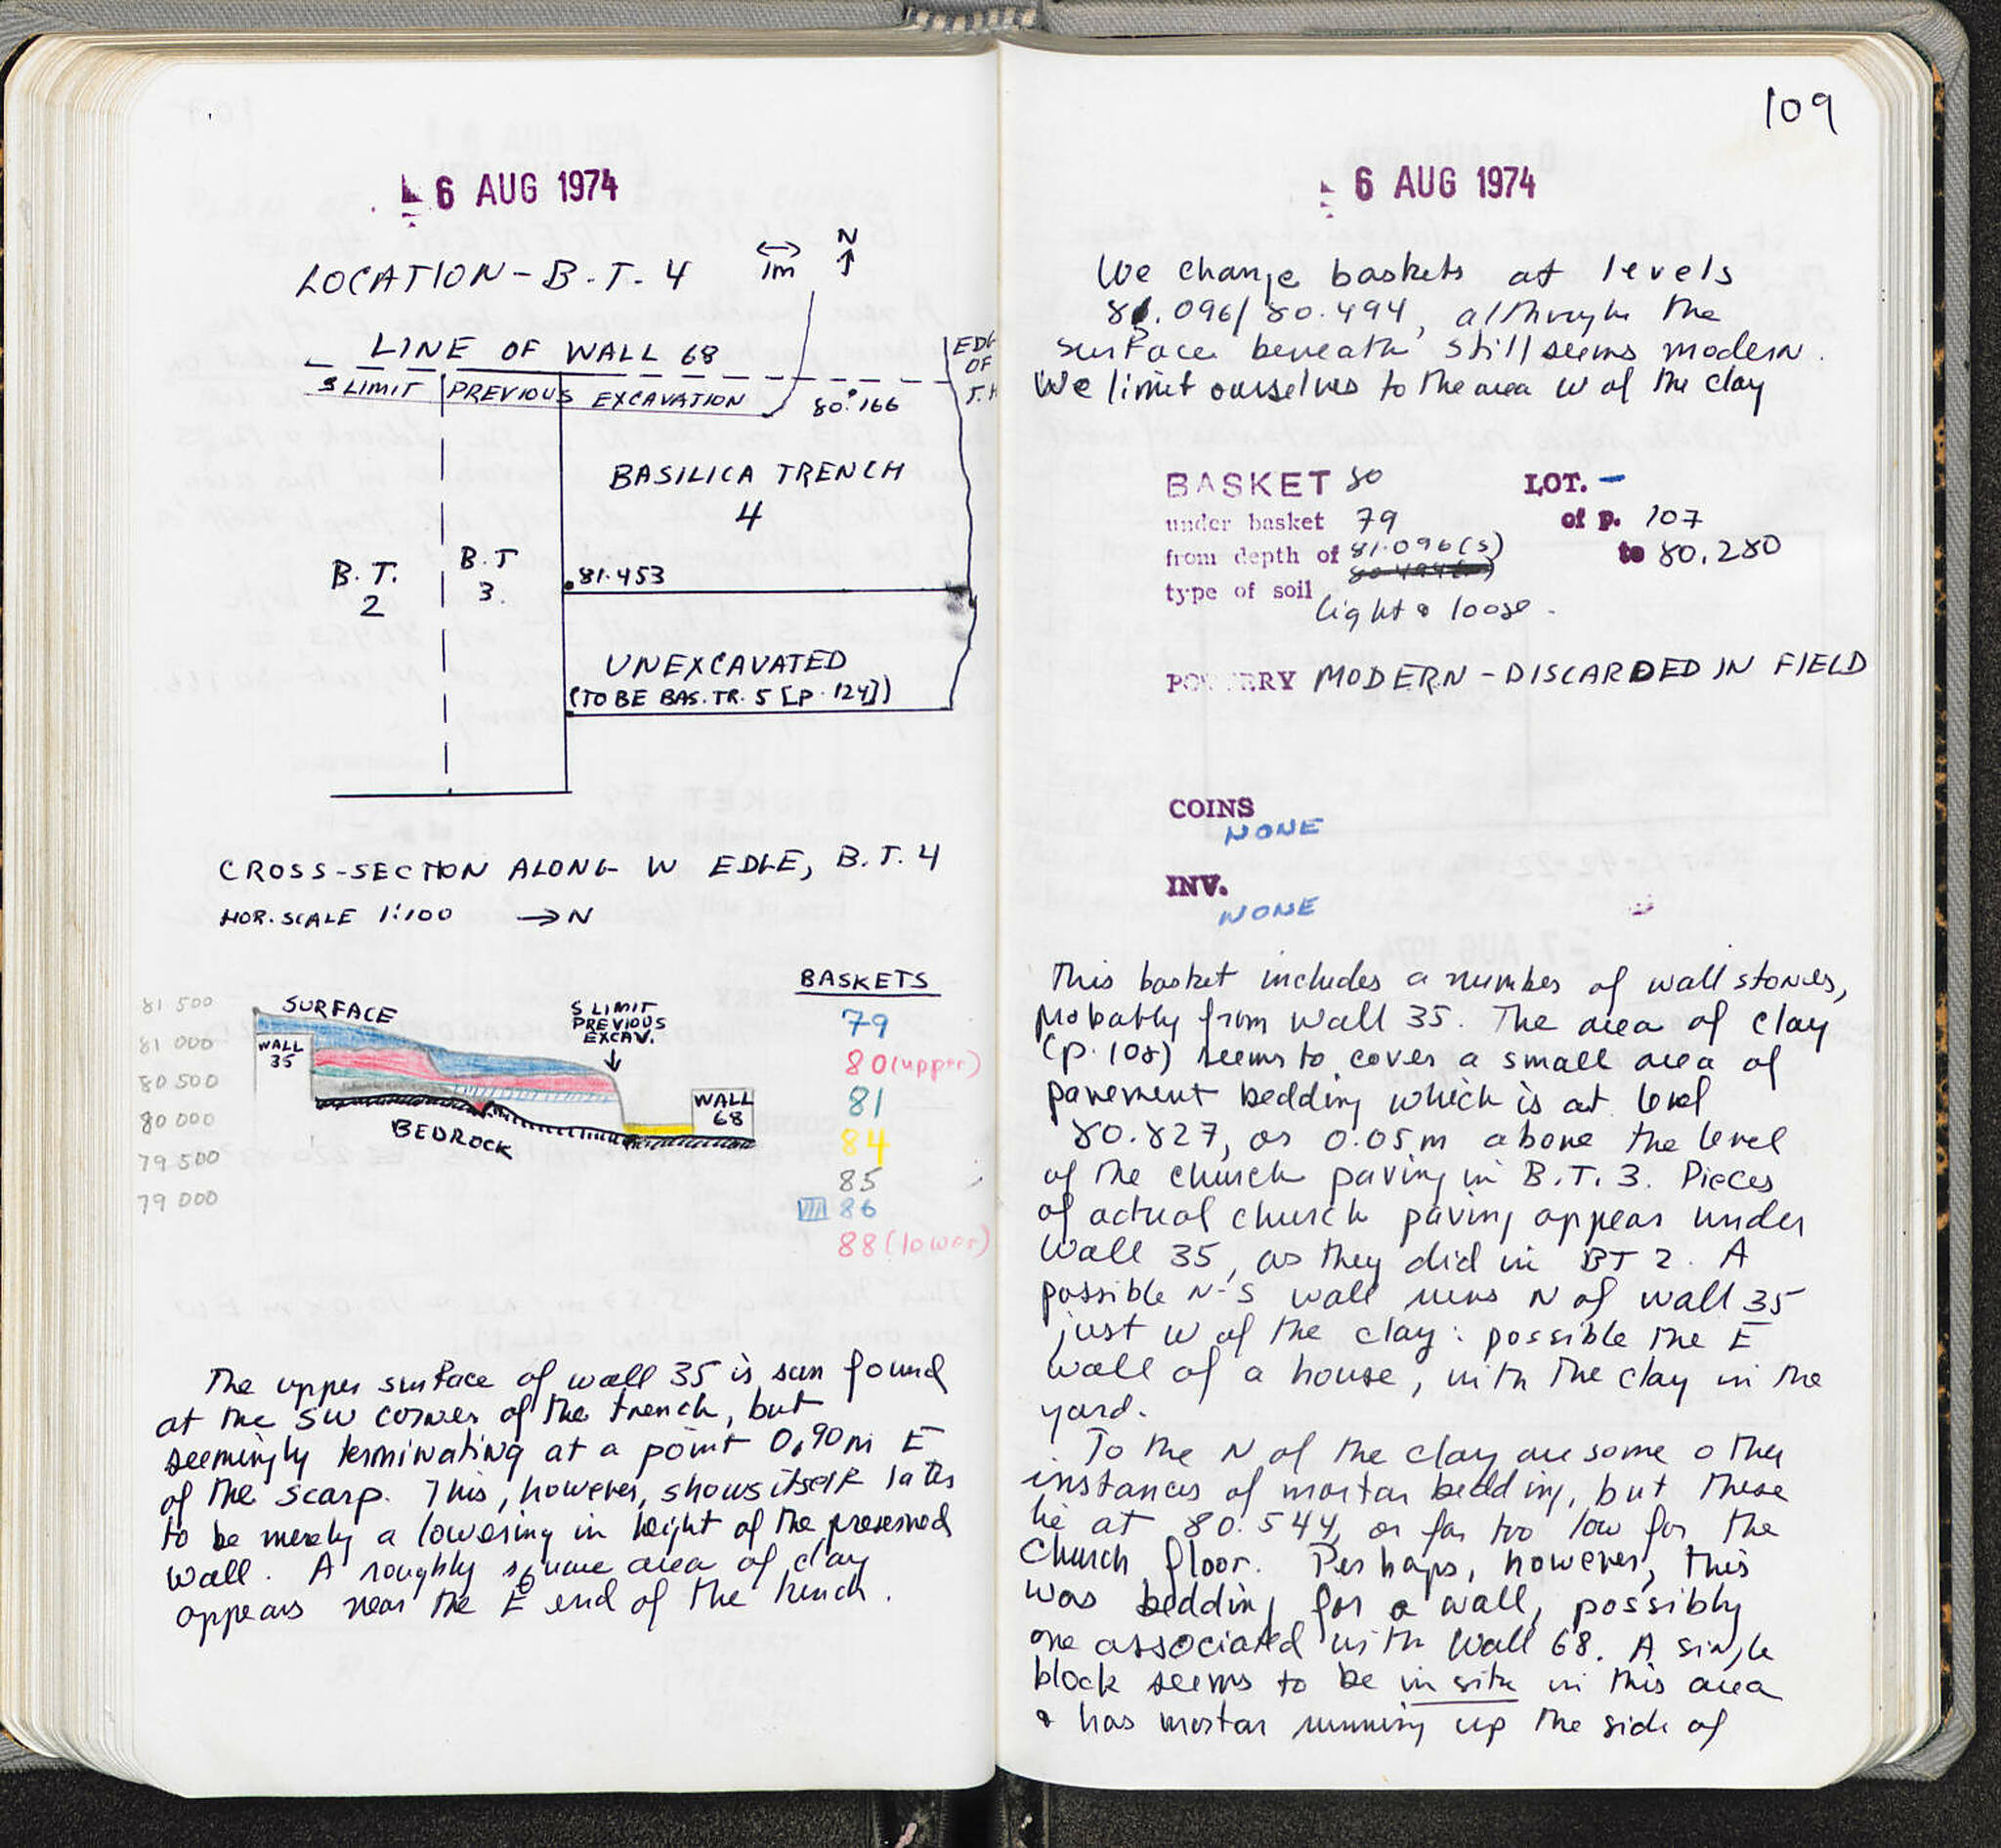 6 AUG 1974
LOCATION - B.T. 4
1m
N
LINE OF WALL 68
S LIMIT PREVIOUS EXCAVATION
80.166
EDG
OF
T.H
BASILICA TRENCH
4
B.T.
2
B.T
3.
81.453
UNEXCAVATED
(TO BE BAS. TR. 5 [P. 124])
CROSS-SECTION ALONG W EDGE, B.T. 4
HOR. SCALE 1:100 → N
81 500
81 000
80 500
80 000
79 500
79 000
SURFACE
WALL
35
S LIMIT
PREVIOUS
EXCAV.
WALL
68
BEDROCK
BASKETS
79
80 (upper)
81
84
85
86
88 (lower)
The upper surface of wall 35 is soon found
at the SW corner of the trench, but
seemingly terminating at a point 0,90m E
of the scarp. This, however, shows itself later
to be merely a lowering in height of the preserved
wall. A roughly square area of clay
appears near the E end of the trench.
109
6 AUG 1974
We change baskets at levels
81.096/80.494, although the
surface beneath still seems modern.
We limit ourselves to the area W of the clay
BASKET 80
LOT. -
under basket 79
of p. 107
from depth of 81.096(S)
to 80.280
type of soil light & loose.
POTTERY MODERN - DISCARDED IN FIELD
COINS
NONE
INV.
NONE
This basket includes a number of wall stones,
probably from wall 35. The area of clay
(p. 108) seems to cover a small area of
pavement bedding which is at level
80.827, or 0.05m above the level
of the church paving in B.T. 3. Pieces
of actual church paving appear under
Wall 35, as they did in BT 2. A
possible N-S wall runs N of wall 35
just W of the clay: possible the E
wall of a house, with the clay in the
yard.
To the N of the clay are some other
instances of mortar bedding, but these
lie at 80.544, or far too low for the
church floor. Perhaps, however, this
was bedding for a wall, possibly
one associated with Wall 68. A single
block seems to be in situ in this area
& has mortar running up the side of